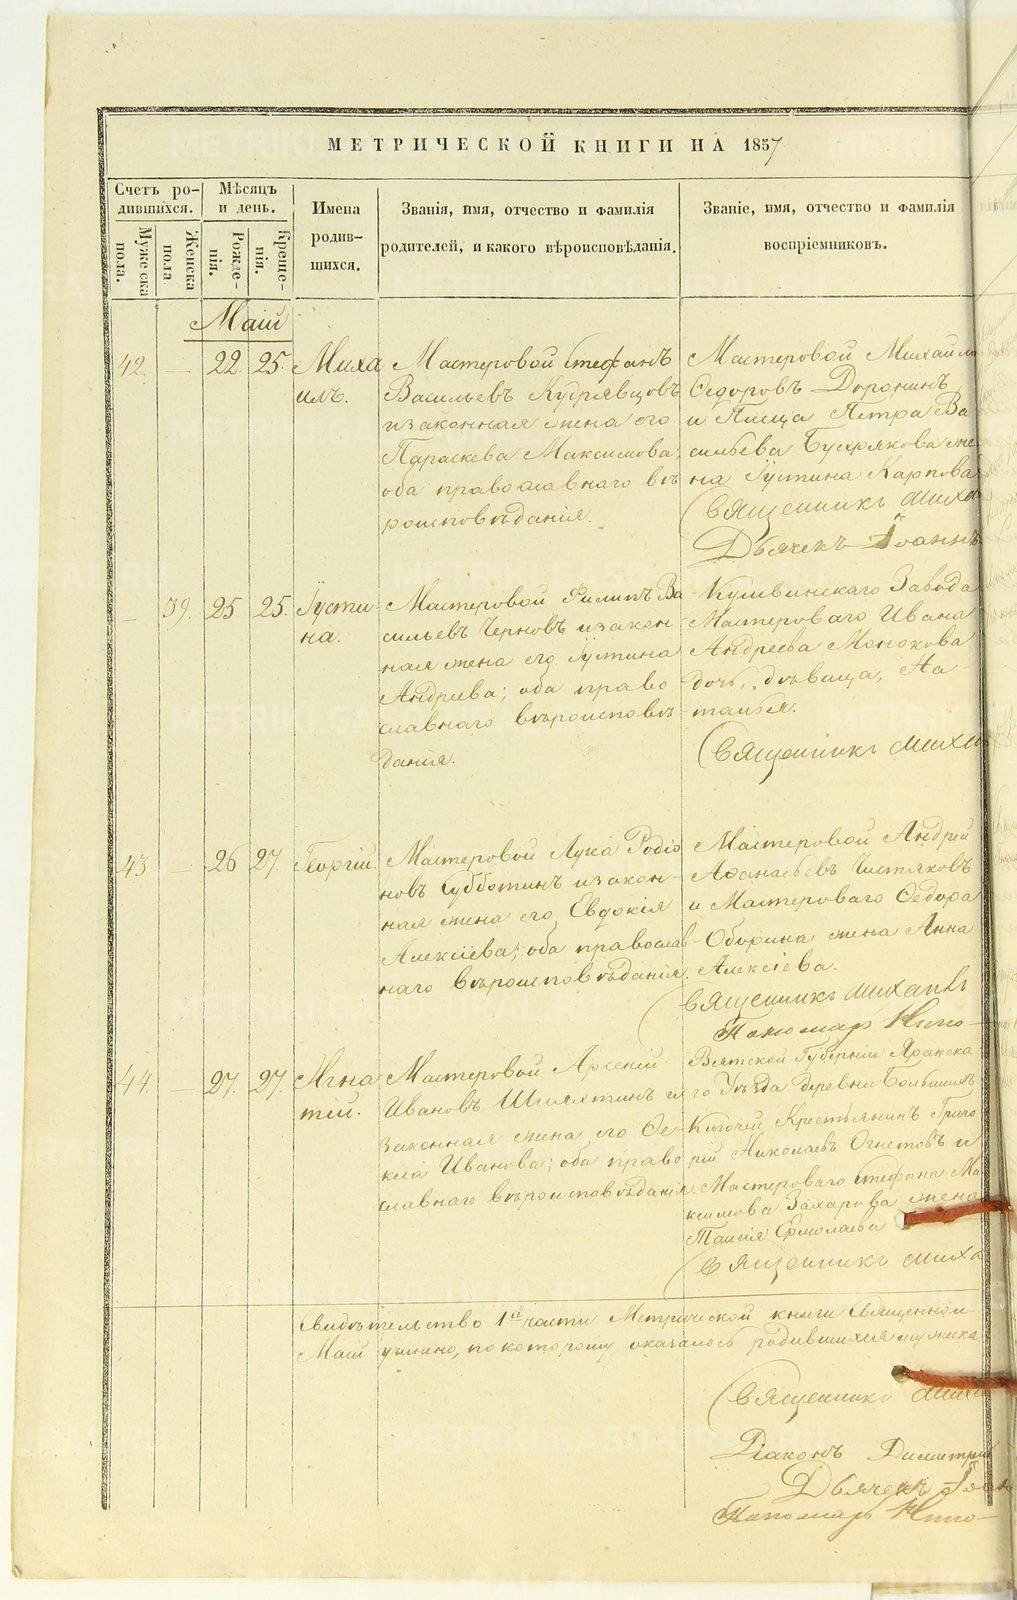 МЕТРИЧЕСКОЙ КНИГИ НА 1857
Счетъ ро-
дившихся.
Мужеска
пола.
Женска
пола
Мѣсяцъ
и день.
Рожде-
нія.
Креще-
нія.
Имена
родив-
шихся.
Званія, имя, отчество и фамилія
родителей, и какого вѣроисповѣданія.
Званіе, имя, отчество и фамилія
воспріемниковъ.
Маій
42. — 22. 25. Миха
илъ.
Мастеровой Стефанъ
Васильевъ Кудрявцовъ
и законная жена его
Параскева Максимова,
оба православнаго вѣ
роисповѣданія.
Мастеровой Михаило
Ѳедоровъ Доронинъ
и Писца Петра Ва
сильева Бухрякова же
на Іустина Карпова
Священникъ Миха
Дьячекъ Іоаннъ
— 39. 25 25. Іусти-
на.
Мастеровой Филипъ Ва
сильевъ Черновъ и закон-
ная жена его Іустина
Андреева; оба право
славнаго вѣроисповѣ
данія.
Кушвинскаго Завода
Мастероваго Ивана
Андреева Монокова
дочь, дѣвица, На
талья.
Священникъ Миха
43. — 26 27. Георгій.
Мастеровой Лука Родіо
новъ Субботинъ и закон-
ная жена его Евдокія
Алексіева; оба православ-
наго вѣроисповѣданія.
Мастеровой Андрей
Аѳанасьевъ Чистяковъ
и Мастероваго Ѳедора
Оборина жена Анна
Алексіева.
Священникъ Михаилъ
Пономарь
44. — 27. 27. Игна
тій.
Мастеровой Арсеній
Ивановъ Шляхтинъ и
законная жена его Ѳе-
кла Иванова; оба право
славнаго вѣроисповѣданія.
Вятской Губерніи Яранска
го Уѣзда деревни Большихъ
Ключей Крестьянинъ Григо
рій Николаевъ Огнетовъ и
Мастероваго Стефана Ма
ксимова Захарова жена
Таисія Ермолаева
Священникъ Миха
Свидѣтельство 1й части Метрической книги Священно
Маій учинено, по которому оказалось родившихся мужска
Священникъ Миха
Діаконъ Димитрій
Дьячекъ Іоан
Пономарь
METRIKI.GASO-URAL.RU